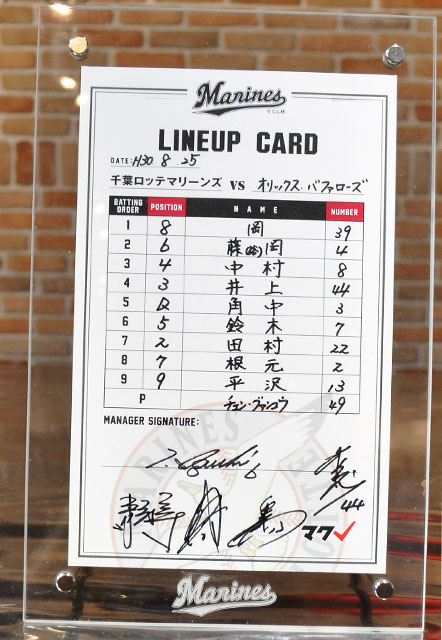 Marines
© C.L.M.
LINEUP CARD
DATE: H30 8 . 25
千葉ロッテマリーンズ VS オリックス・バファローズ
BATTING ORDER POSITION NAME NUMBER
1 8 岡 39
2 6 藤(裕)岡 4
3 4 中村 8
4 3 井上 44
5 D 角中 3
6 5 鈴木 7
7 2 田村 22
8 7 根元 2
9 9 平沢 13
P チェン・グァンユウ 49
MANAGER SIGNATURE:
6
44
マクレ
Marines